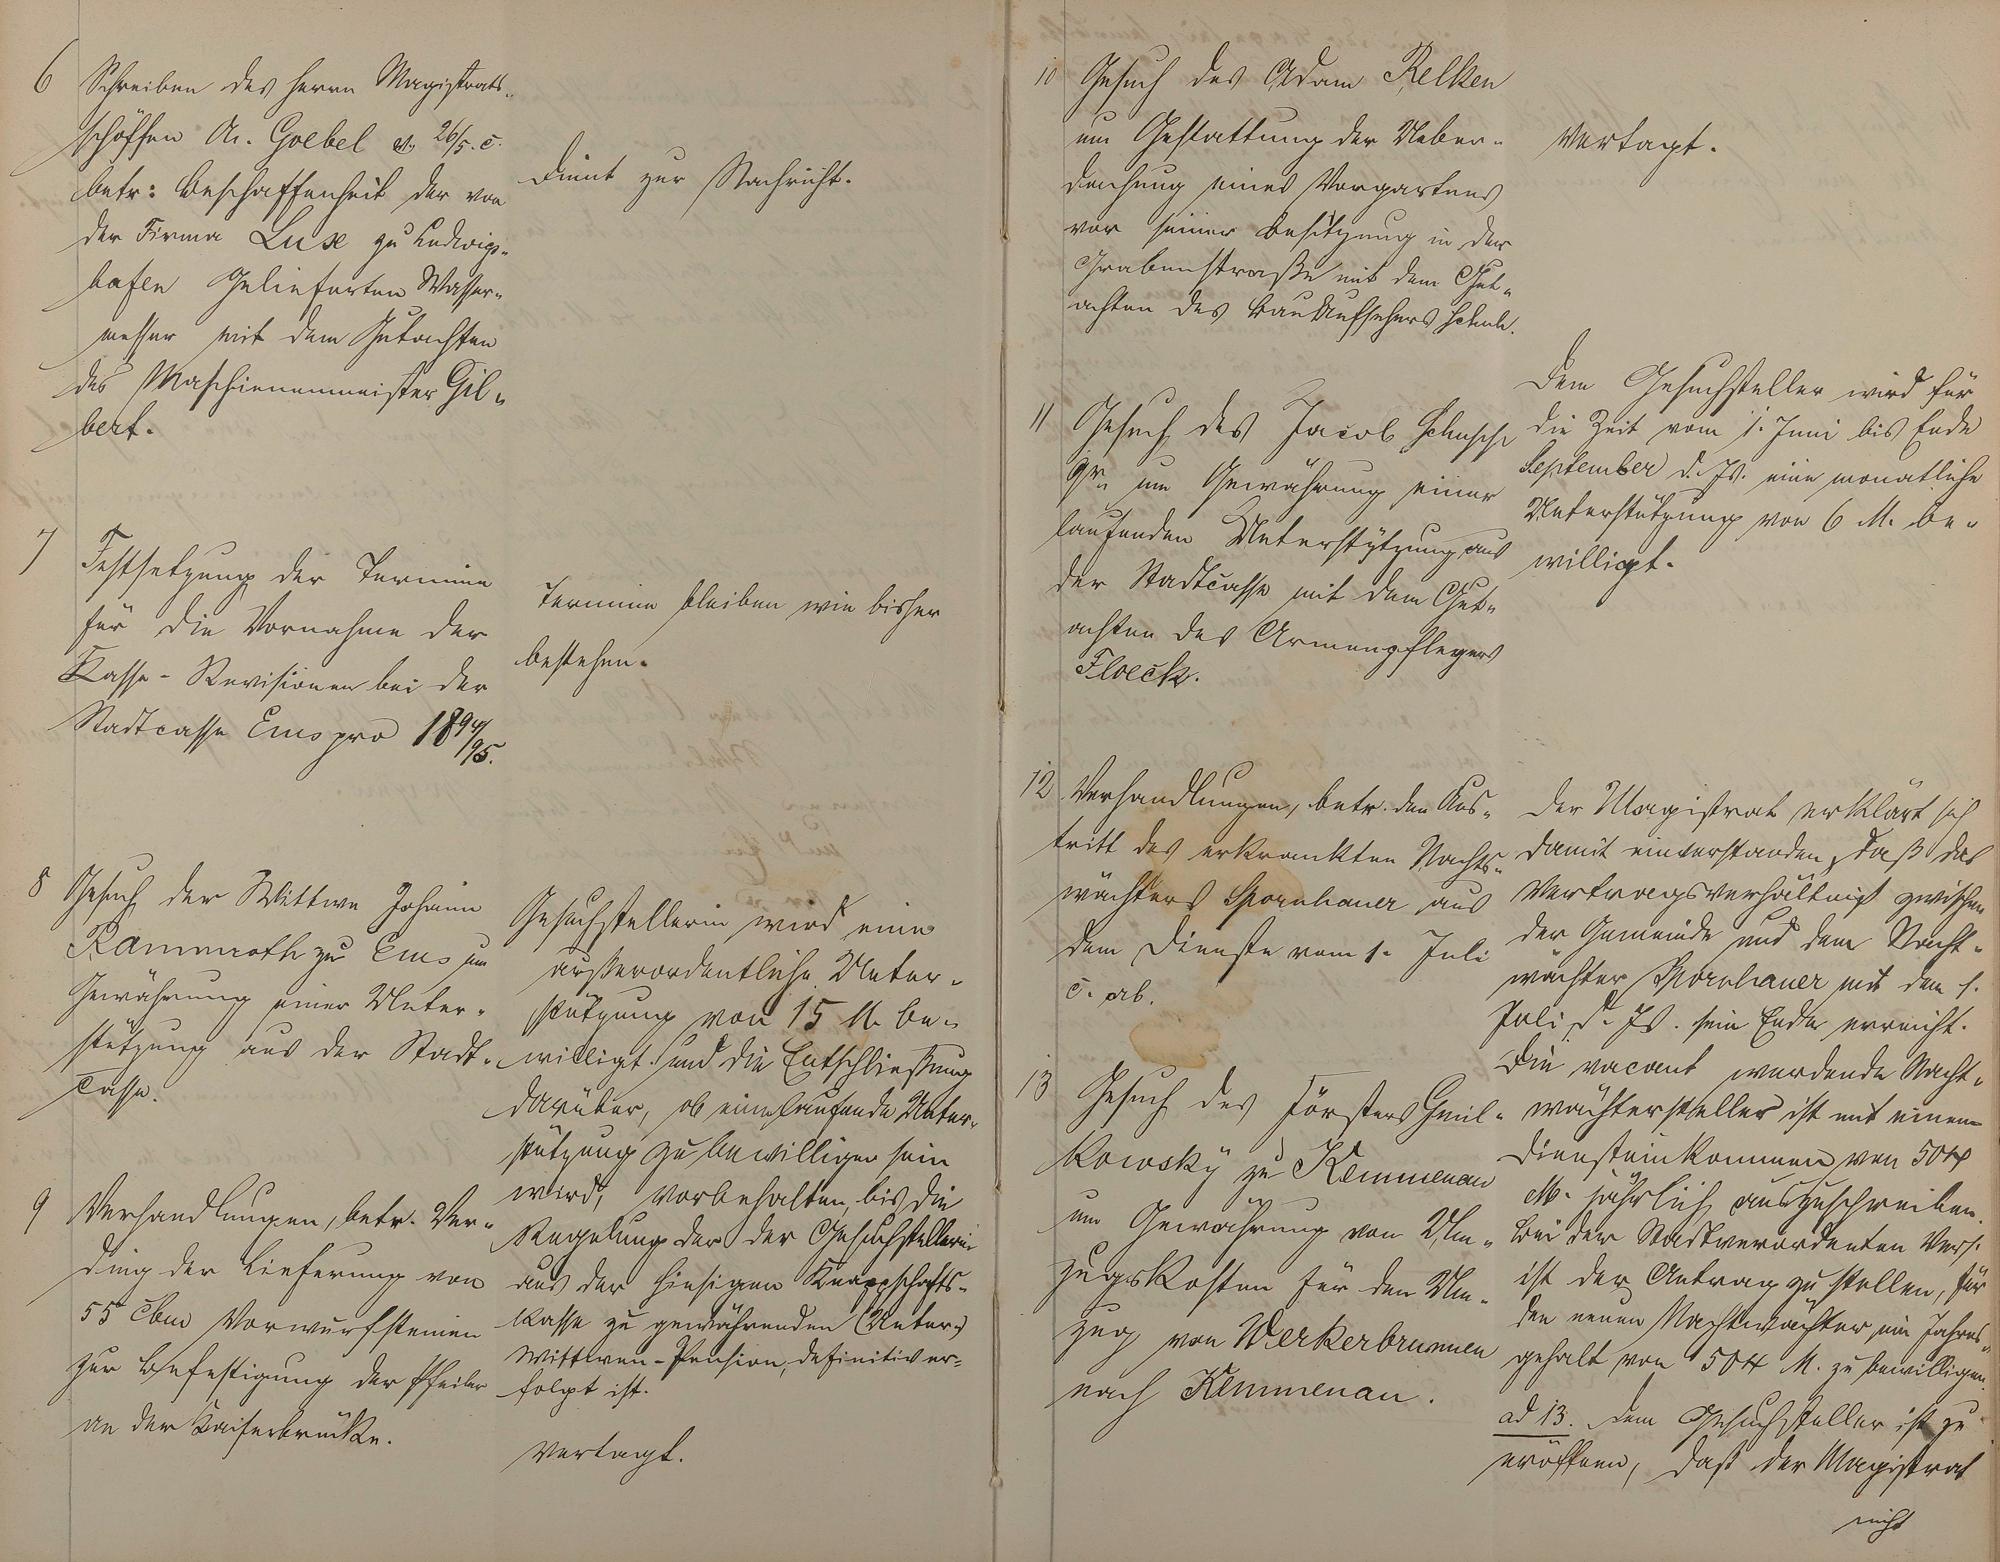 6 Schreiben des Herrn Magistrats-
schöffen An. Goebel v. 26/5. c.
betr: Beschaffenheit der von
der Firma Luse zu Ludwigs-
hafen gelieferten Wasser-
messer mit dem Gutachten
des Maschienenmeister Gil-
bert.
Dient zur Nachricht.
7 Festsetzung der Termine
für die Vornahme der
Kasse-Revisionen bei der
Stadtcasse Ems pro 1894/95.
Termine bleiben wie bisher
bestehen.
8 Gesuch der Wittwe Johann
Rammroth zu Ems um
Gewährung einer Unter-
stützung aus der Stadt-
casse.
Gesuchstellerin wird eine
außerordentliche Unter-
stützung von 15 M. be-
willigt und die Entschließung
darüber, ob eine laufende Unter-
stützung zu bewilligen sein
wird, vorbehalten, bis die
Regelung der der Gesuchstellerin
aus der hiesigen Knappschafts-
kasse zu gewährenden (Unter-)
Wittwen-Pension, definitiv er-
folgt ist.
9 Verhandlungen, betr. Ver-
ding der Lieferung von
55 cbm Vorwurfsteinen
zur Befestigung der Pfeiler
an der Kaiserbrücke.
Vertagt.
10 Gesuch des Adam Relken
um Gestattung der Ueber-
dachung eines Vorgartens
vor seiner Besitzung in der
Grabenstraße mit dem Gut-
achten des Bauaufsehers
Vertagt.
11 Gesuch des Jacob
um Gewährung einer
laufenden Unterstützung aus
der Stadtcasse mit dem Gut-
achten des Armenpflegers
Floeck.
Dem Gesuchsteller wird für
die Zeit vom 1. Juni bis Ende
September d. Js. eine monatliche
Unterstützung von 6 M. be-
willigt.
12 Verhandlungen, betr. den Aus-
tritt des erkrankten Nacht-
wächters Spornhauer aus
dem Dienste vom 1. Juli
c. ab.
Der Magistrat erklärt sich
damit einverstanden, daß das
Vertragsverhältniß zwischen
der Gemeinde und dem Nacht-
wächter Spornhauer mit dem 1.
Juli d. Js. sein Ende erreicht.
Die vacant werdende Nacht-
wächterstelle ist mit einem
Diensteinkommen von 504
M. jährlich auszuschreiben.
Bei der Stadtverordneten Vers.
ist der Antrag zu stellen, für
den neuen Nachtwächter ein Jahres-
gehalt von 504 M. zu bewilligen.
13 Gesuch des Försters Gmil-
kowsky zu Kemmenau
um Gewährung von Um-
zugskosten für den Um-
zug von Werkerbrunnen
nach Kemmenau.
ad 13. Dem Gesuchsteller ist zu
eröffnen, daß der Magistrat
nicht